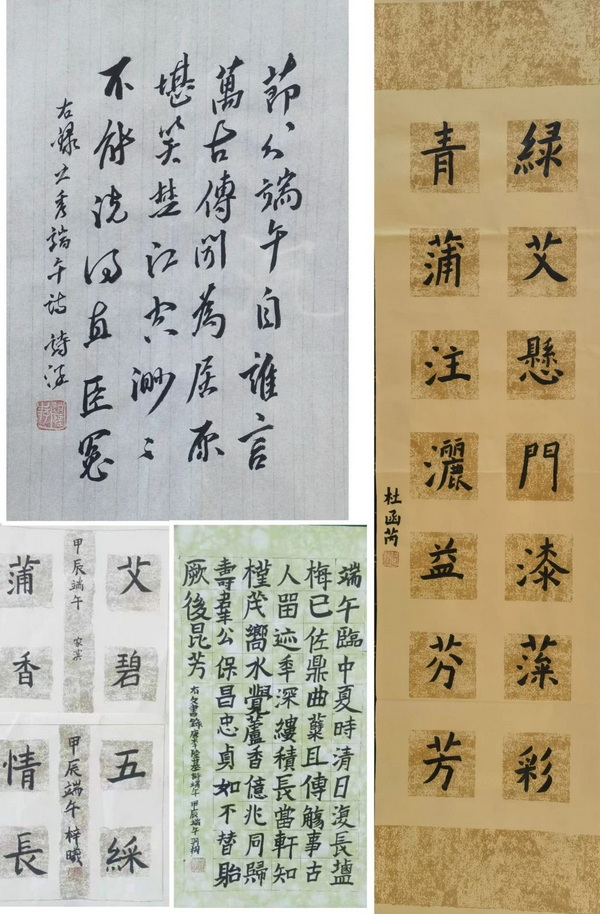 節分端午自誰言
萬古傳聞為屈原
堪笑楚江空渺々
不能洗得直臣冤
右錄文秀端午詩
綠艾懸門漆藻彩
青蒲注灑益芬芳
杜函芮
艾碧
甲辰端午
蒲香
五綵
甲辰端午 梓曦
情長
端午臨中夏時清日復長塩
梅已佐鼎曲糵且傳觴事古
人留迹年深縷積長當軒知
槿茂嚮水覺蘆香億兆同歸
壽群公保昌忠貞如不替貽
厥後昆芳
甲辰端午